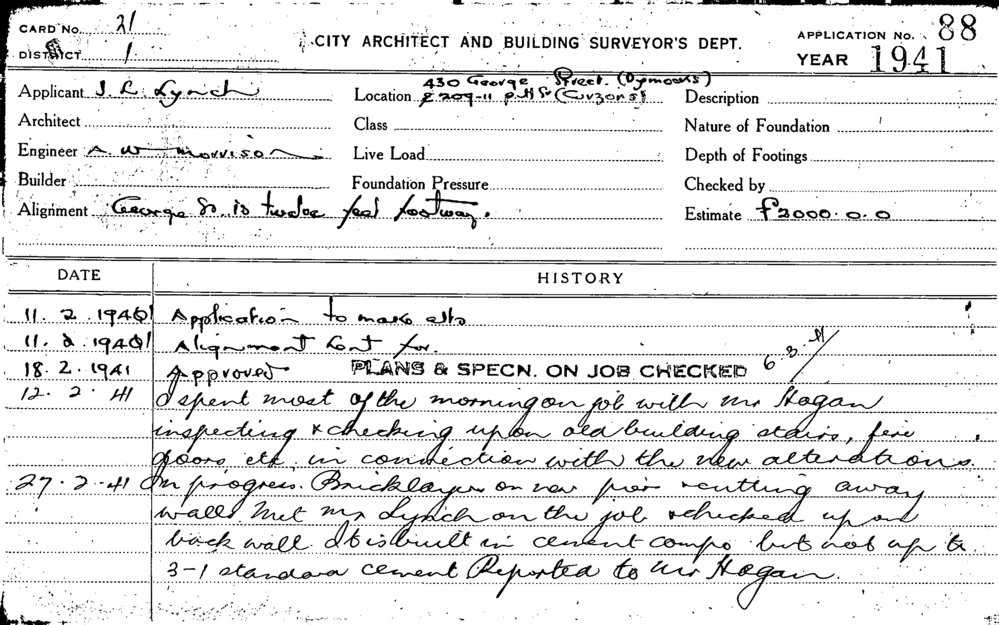 CARD No. 21
DISTRICT 1
CITY ARCHITECT AND BUILDING SURVEYOR'S DEPT.
APPLICATION No. 88
YEAR 1941
Applicant J. L. Lynch
Architect
Engineer A W Morrison
Builder
Alignment George St. is twelve feet footway.
Location 430 George Street. (Dymocks)
& 209-11 Pitt St (Curzons)
Class
Live Load
Foundation Pressure
Description
Nature of Foundation
Depth of Footings
Checked by
Estimate £2000.0.0
DATE HISTORY
11. 2. 1941 Application to make alts
11. 2. 1941 Alignment Cont for.
18. 2. 1941 Approved PLANS & SPECN. ON JOB CHECKED 6.3.41
12. 2. 41 I spent most of the morning on job with Mr Hogan
inspecting & checking up on old building stairs, fire
doors, etc, in connection with the new alterations.
27. 2. 41 In progress. Bricklayers on new piers & cutting away
walls Met Mr Lynch on the job & checked up on
back wall It is built in cement compo but not up to
3-1 standard cement Reported to Mr Hogan.